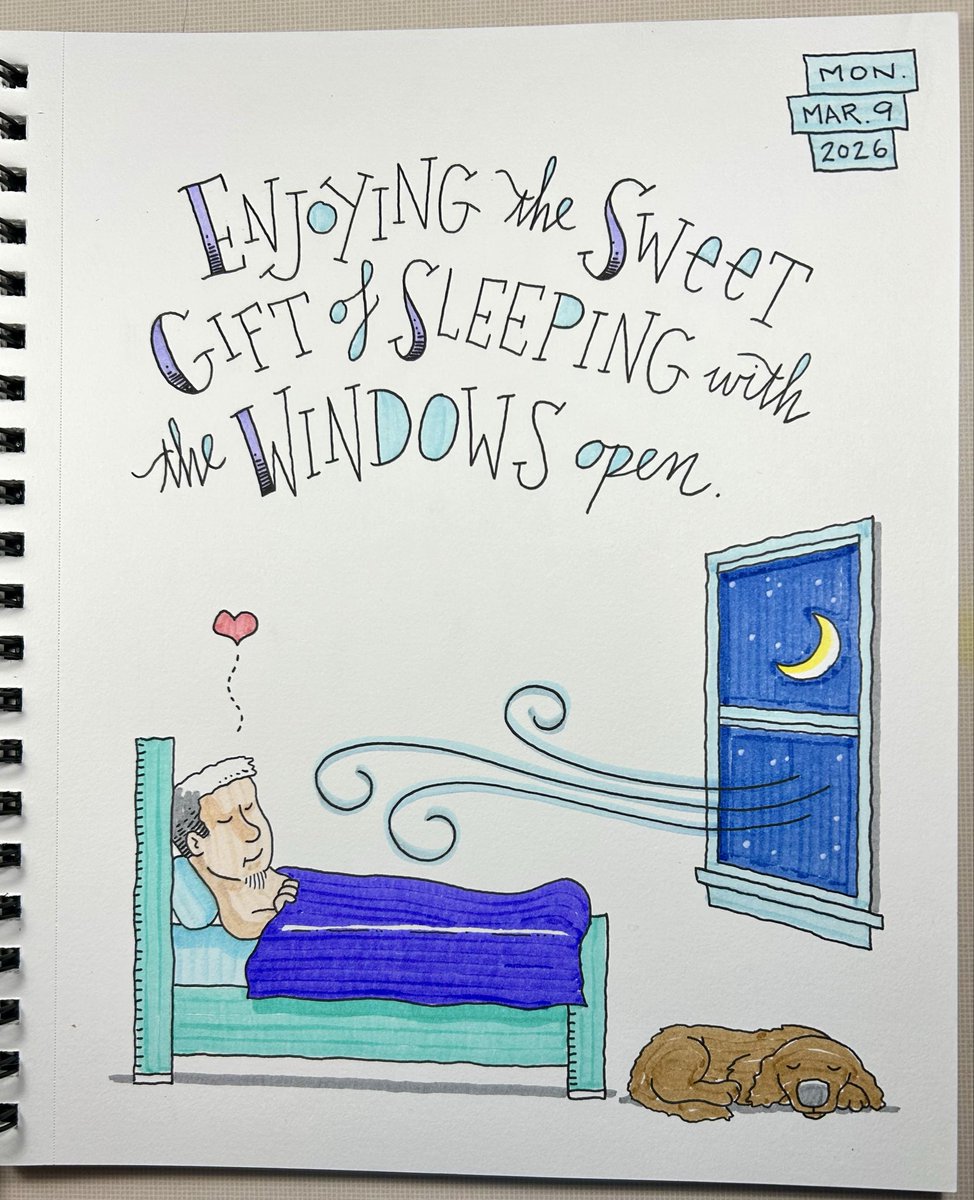 MON.
MAR. 9
2026
ENJOYING the SWeeT
GIFT of SLEEPING with
the WINDOWS open.